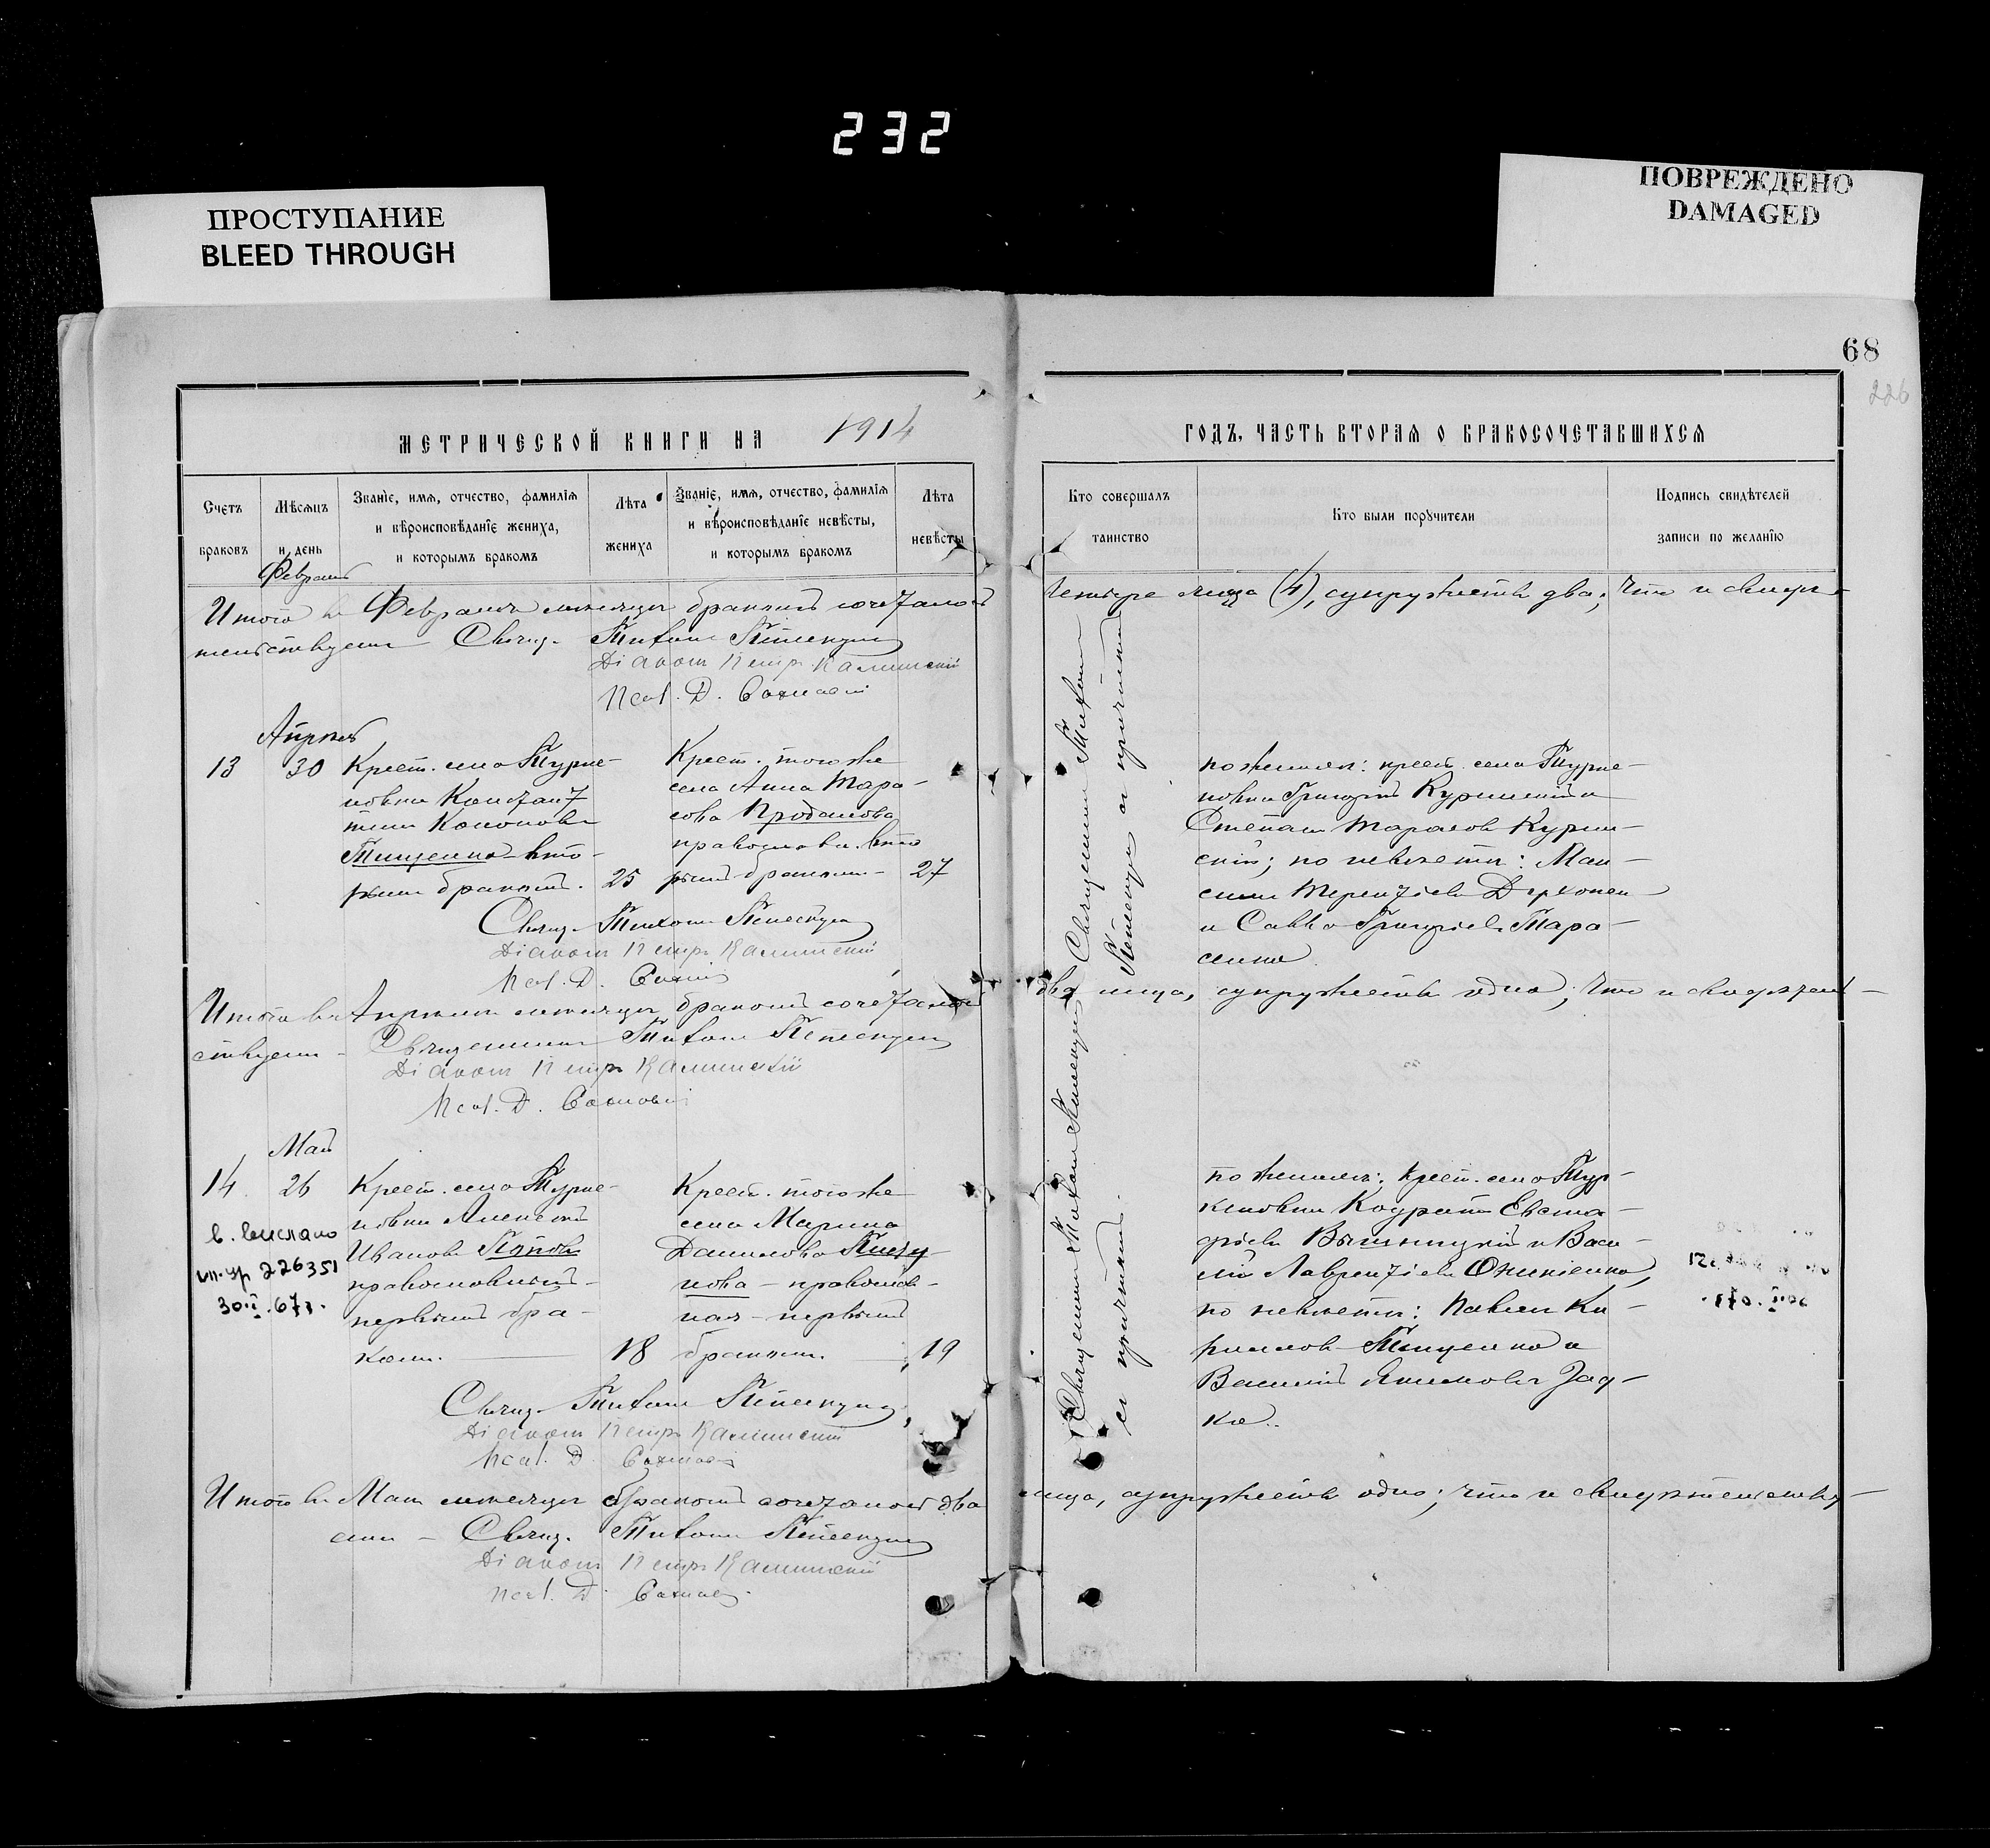 232
ПРОСТУПАНИЕ
BLEED THROUGH
ПОВРЕЖДЕНО
DAMAGED
68
226
МЕТРИЧЕСКОЙ КНИГИ НА 1914
ГОДЪ, ЧАСТЬ ВТОРАЯ О БРАКОСОЧЕТАВШИХСЯ
Счетъ браковъ
Мѣсяцъ и день
Званіе, имя, отчество, фамилія и вѣроисповѣданіе жениха, и которымъ бракомъ
Лѣта жениха
Званіе, имя, отчество, фамилія и вѣроисповѣданіе невѣсты, и которымъ бракомъ
Лѣта невѣсты
Кто совершалъ таинство
Кто были поручители
Подпись свидѣтелей записи по желанію
Февраль
Итого въ Февралѣ мѣсяцѣ бракомъ сочеталось
четыре лица (4), супружествъ два; что и свидѣ-
тельствуемъ Свящ. Тихонъ
Діаконъ Петръ Калинскій
Псал. Д.
Апрѣль
13
30
Крест. села Турке-
новки Констан-
тинъ Кононовъ
Тищенко вто-
рымъ бракомъ. 25
Крест. того же
села Анна Тара-
сова Проданова
православн. вто
рымъ бракомъ 27
Священникъ Тихонъ
съ причтомъ
по женихѣ: крест. села Турке-
новки Григорій Куринскій и
Степанъ Тарасовъ Курин-
скій; по невѣстѣ: Мак-
симъ Терентіевъ
и Савва Григоріевъ Тара-
сенко
Свящ. Тихонъ
Діаконъ Петръ Калинскій
Псал. Д.
Итого въ Апрѣлѣ мѣсяцѣ бракомъ сочеталось
два лица, супружество одно; что и свидѣтель-
ствуемъ Священникъ Тихонъ
Діаконъ Петръ Калинскій
Псал. Д.
Май
14
26
Крест. села Турке-
новки Алексѣй
Ивановъ Поповъ
православный
первымъ бра-
комъ. 18
Крест. того же
села Марина
Данилова
нова - православ-
ная - первымъ
бракомъ. 19
226351
30.II.67г.
Священникъ Тихонъ
съ причтомъ.
по женихѣ: крест. села Тур-
кеновки Кодратъ Евста-
фіевъ и Васи-
лій Лаврентіевъ
по невѣстѣ: Павелъ Ки-
рилловъ Тищенко и
Василій Якимовъ Зад-
ко..
Свящ. Тихонъ
Діаконъ Петръ Калинскій
Псал. Д.
Итого въ Маѣ мѣсяцѣ бракомъ сочеталось два
лица, супружество одно; что и свидѣтельству-
емъ - Свящ. Тихонъ
Діаконъ Петръ Калинскій
Псал. Д.